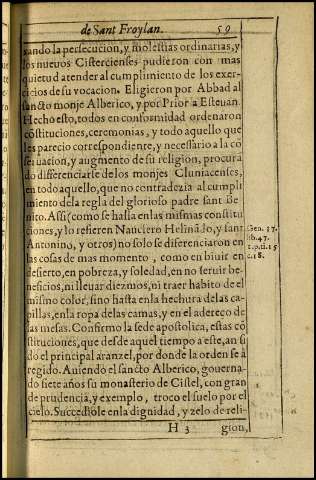 de Sant Froylan. 59
sando la persecucion, y molestias ordinarias, y
los nueuos Cistercienses pudieron con mas
quietud atender al cumplimiento de los exer-
cicios de su vocacion. Eligieron por Abbad al
sancto monje Alberico, y por Prior a Esteuan.
Hecho esto, todos en conformidad ordenaron
cõstituciones, ceremonias, y todo aquello que
les parecio correspondiente, y necessario a la cõ
seruacion, y augmento de su religion, procura
do differenciarse de los monjes Cluniacenses,
en todo aquello, que no contradezia al cumpli
miento dela regla del glorioso padre sant Be
nito. Assi (como se hasla enlas mismas constitu
ciones, y lo refieren Nauclero Helinãdo, y sant
Antonino, y otros) no solo se diferenciaron en
las cosas de mas momento, como en biuir en
desierto, en pobreza, y soledad, en no seruir be-
neficios, ni lleuar diezmos, ni traer habito de el
mismo color, sino hasta enla hechura delas ca-
pillas, enla ropa delas camas, y en el adereço de
las mesas. Confirmo la sede apostolica, estas cõ
stituciones, que desde aquel tiempo a este, an si
do el principal aranzel, por donde la orden se à
regido. Auiendo el sancto Alberico, gouerna-
do siete años su monasterio de Cistel, con gran
de prudencia, y exemplo, troco el suelo por el
cielo. Succediole enla dignidad, y zelo de reli-
H 3 gion,
Gen. 37.
lib. 47.
1.p.ti.15
c.18.